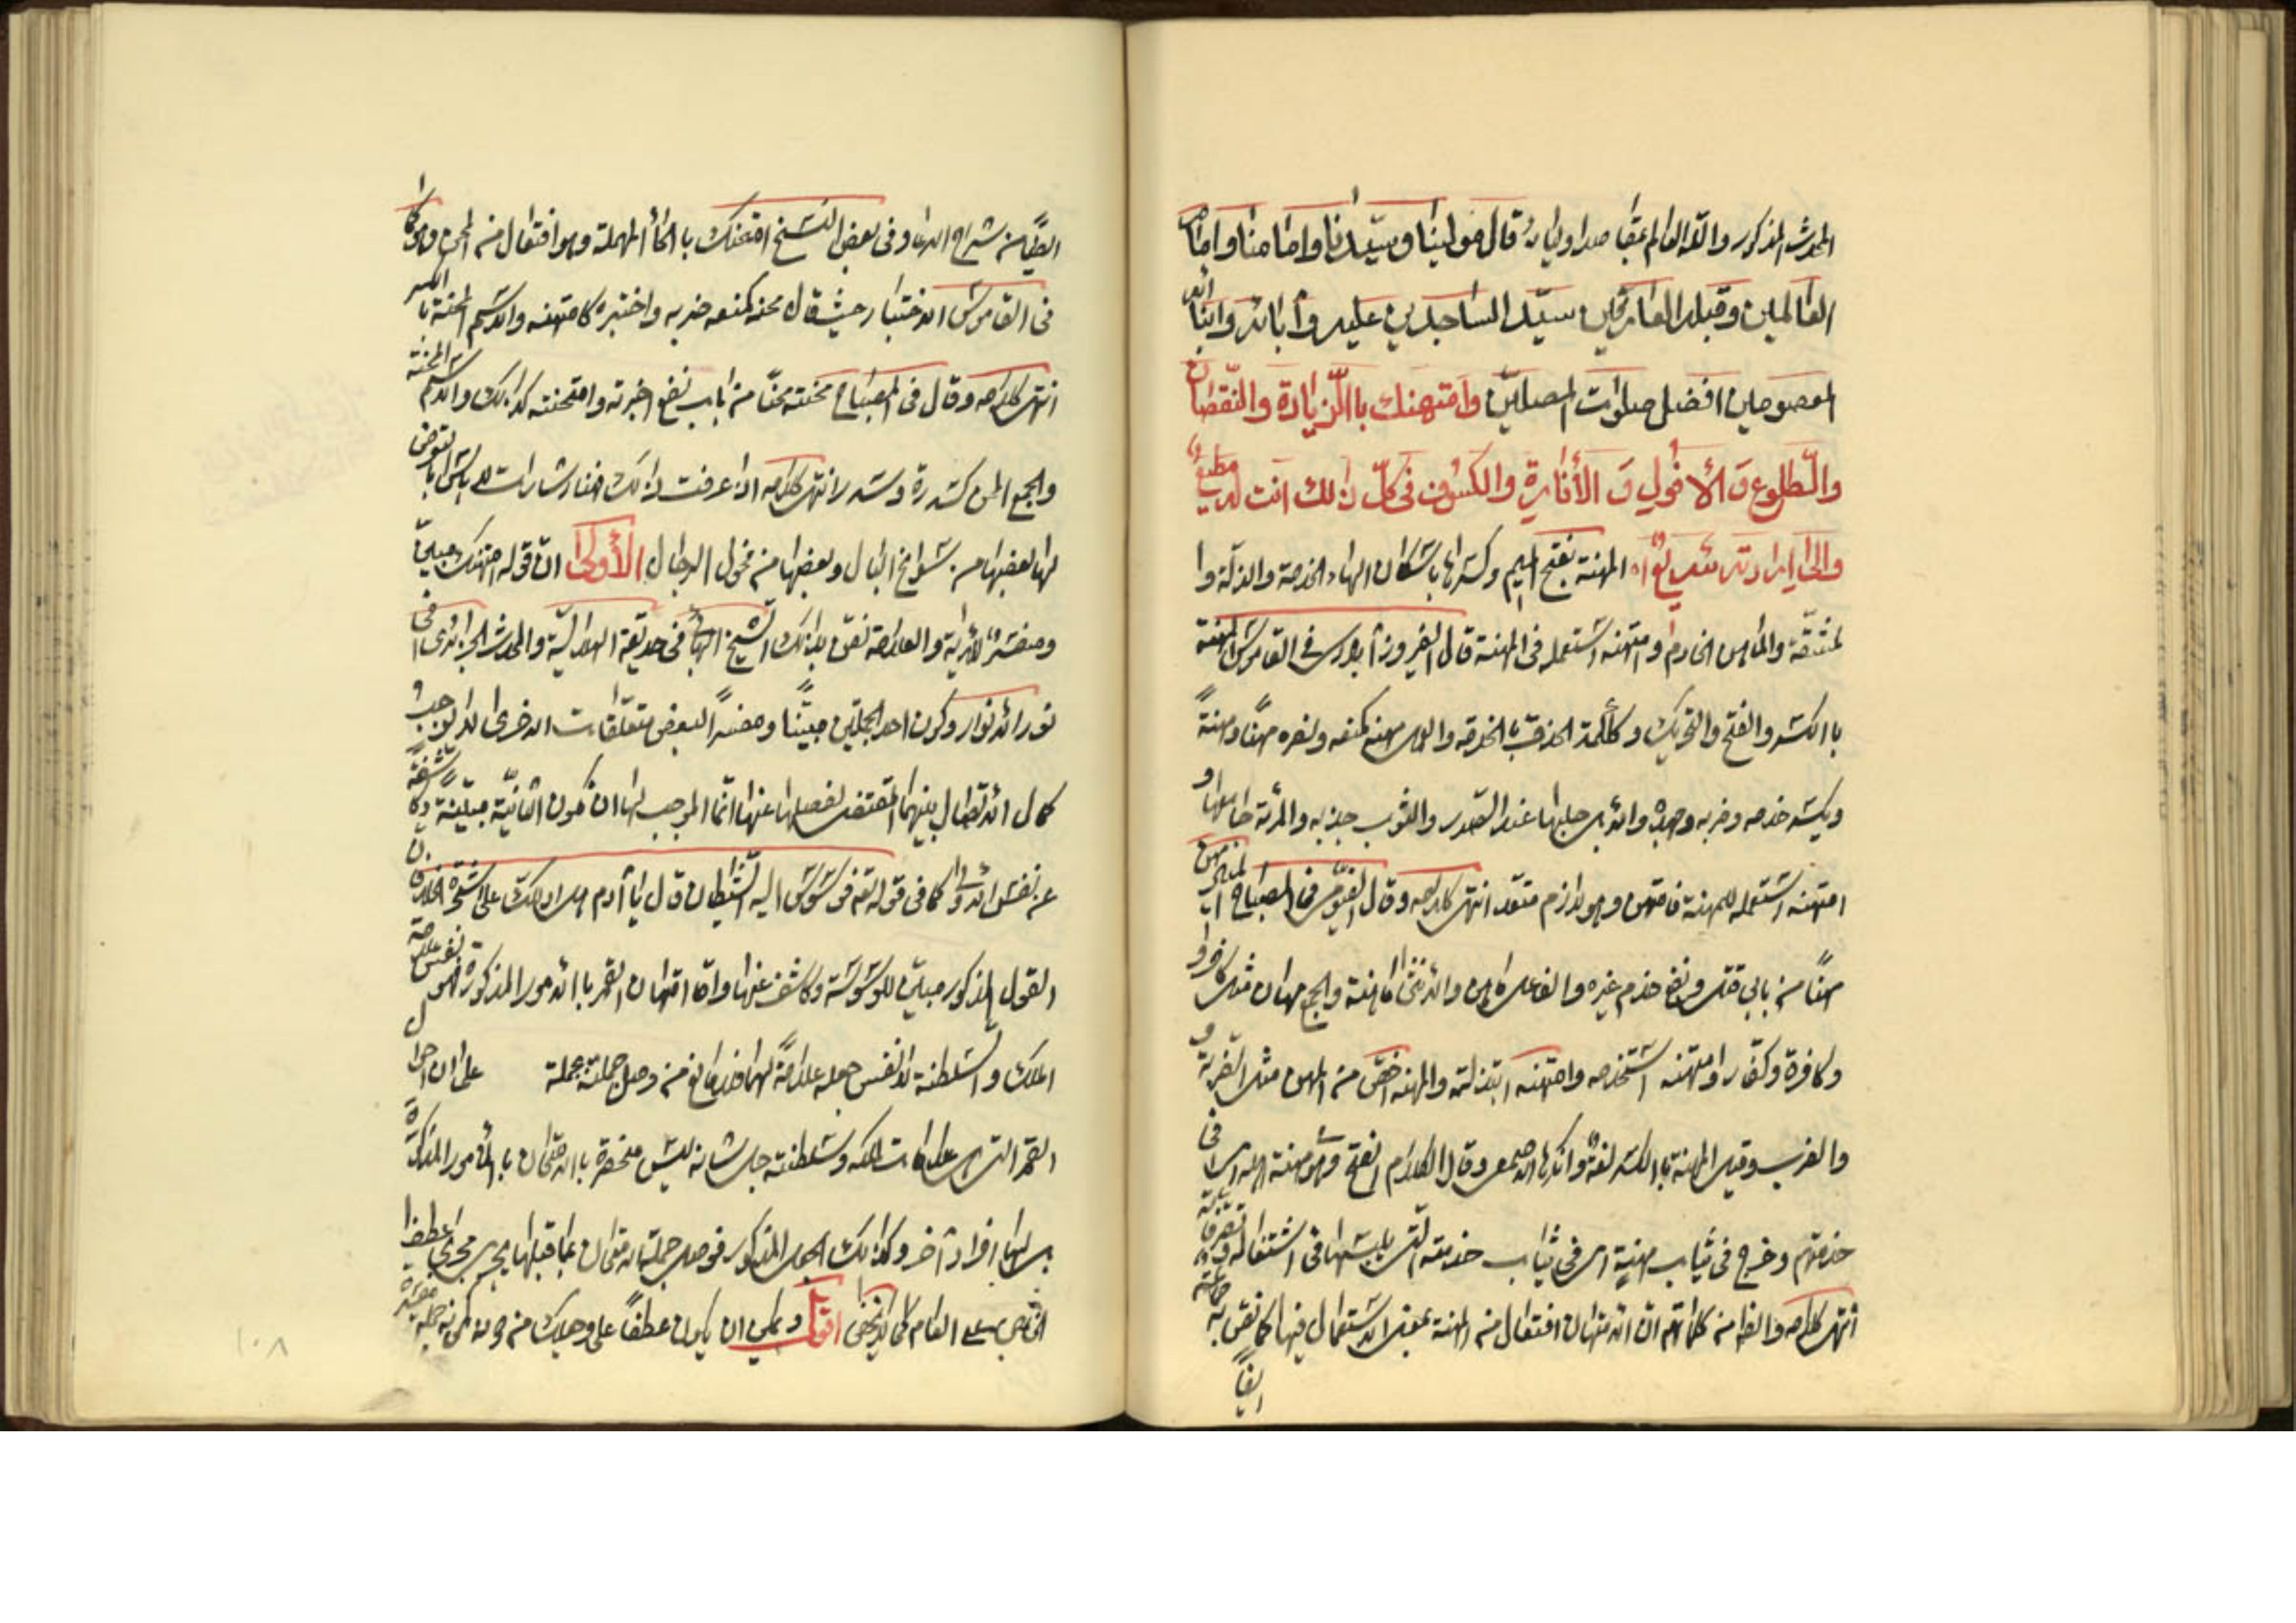 المحدث المذكور والله العالم بمقاصد اوليائه قال مولينا وسيدنا وامامنا وامام
العالمين وقبلة العارفين سيد الساجدين عليه وآبائه وابنائه
المعصومين افضل صلوات المصلين وامتهنك بالزيادة والنقصان
والطلوع والأفول والأنارة والكسوف في كل ذلك انت له مطيع
والى ارادته سريع المهنة بفتح الميم وكسرها باسكان الهاء الخدمة والذلة وا
لمشقة والماهن الخادم وامتهنه استعمله في المهنة قال الفيروزآبادي في القاموس المهنة
بالكسر والفتح والتحريك وككلمة الحذق بالخدمة والعمل مهنه كمنعه ونصره مهنا ومهنة
ويكسر خدمه وضربه وجهده والابل حلبها عند الصدر والثوب جذبه والمرئة جامعها و
امتهنه استعمله للمهنة فامتهن وهو لازم متعد انتهى كلامه وقال الفيومي في المصباح المنير مهن
مهنا من بابي قتل ونفع خدم غيره والفاعل ماهن والانثى ماهنة والجمع مهان مثل كافر و
وكافرة وكفار وامتهنته استخدمه وامتهنه ابتذلته والمهنة اخص من المهن مثل الضربة و
والضرب وقيل المهنة بالكسر لغة وانكرها الاصمعي وقال الكلام الفتح وهو مهنة اهله اي في
خدمتهم وخرج في ثياب مهنته اي في ثياب خدمته التي يلبسها في اشتغاله وتصرفاته
انتهى كلامه والظاهر من كلماتهم ان الامتهان افتعال من المهنة بمعنى الاستعمال فيها كما نص به جماعة
ايضا
من شراح الدعاء وفي بعض النسخ امتحنك بالحاء المهملة وهو افتعال من المحن وهو كما
في القاموس الاختبار حيث قال محنه كمنعه ضربه واختبره كامتحنه والاسم المحنة بالكسر
انتهى كلامه وقال في المصباح محنته محنا من باب نفع اختبرته وامتحنته كذلك والاسم المحنة
والجمع المحن كسدرة وسدر انتهى كلامه اذا عرفت ذلك فهنا اشارات لا باس بالتعرض
لها بعضها من سوانح البال وبعضها من فحول الرجال الأولى ان قوله امتهنك مبين
ومفسر للآية والعلامة نص بذلك الشيخ البهائي في حديقة الهلالية والمحدث الجزائري في
نور الانوار وكون احد الجملتين مبينا ومفسرا لبعض متعلقات الاخرى لا يوجب
كمال الاتصال بينهما المقتضى لفصلها عنها انما الموجب لها ان تكون الثانية مبينة وكاشفة
عن نفس الاولى كما في قوله تعالى فوسوس اليه الشيطان قال يا آدم هل ادلك على شجرة الخلد فان
القول المذكور مبين للوسوسة وكاشف عنها واما امتهان القمر بالامور المذكورة فهو نفس علامة
الملك والسلطنة لا نفس جعله علامة لهما فلا مانع من وصل جملته بجملة على ان احوال
القمر التي هي علامات لملكه وسلطنته جل شانه ليس منحصرة بالامتهان بالامور المذكورة
بل لها افراد آخر وكذلك الجعل المذكور فوصل جملة امتهان بما قبلها يجري مجرى عطف
الخاص على العام كما لا يخفى اقول ويمكن ان يكون عطفا على وحيدك من دون كونه جملة مفسرة
١٠٨